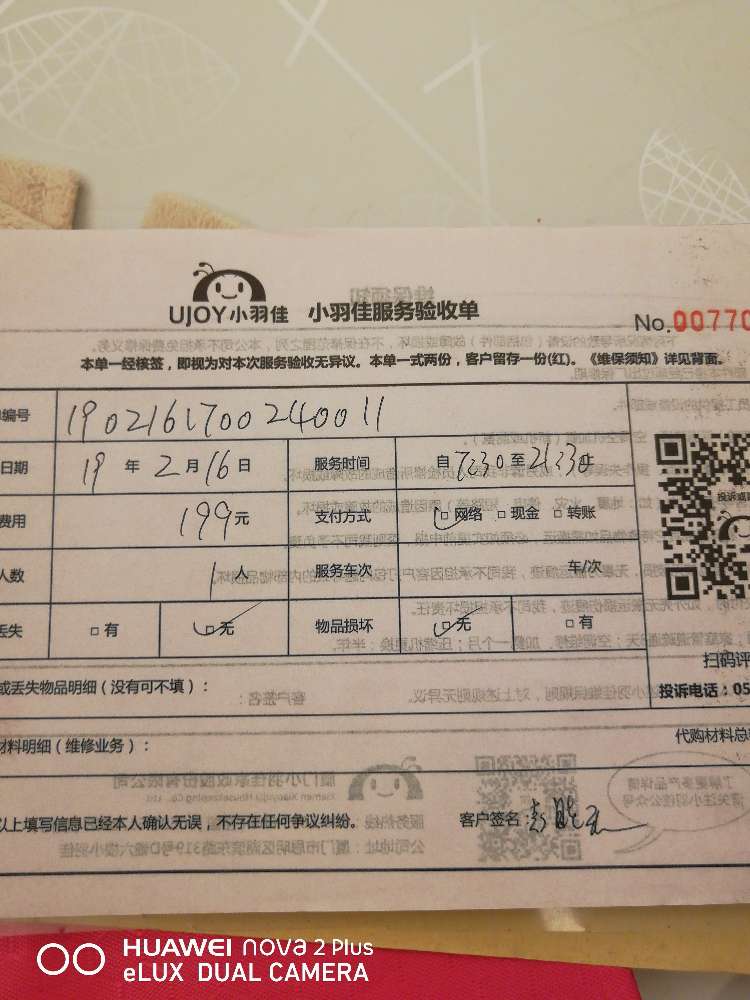 UJOY小羽佳 小羽佳服务验收单
No.00770
本单一经核签，即视为对本次服务验收无异议。本单一式两份，客户留存一份(红)。《维保须知》详见背面。
编号 1902161700240011
日期 19 年 2 月 16 日 服务时间 自 至
费用 199元 支付方式 网络 现金 转账
人数 1人 服务车次 车/次
丢失 有 无 物品损坏 无 有
投诉或
扫码评
或丢失物品明细（没有可不填）：
投诉电话：05
材料明细（维修业务）：
代购材料总
以上填写信息已经本人确认无误，不存在任何争议纠纷。 客户签名：
HUAWEI nova 2 Plus
eLUX DUAL CAMERA